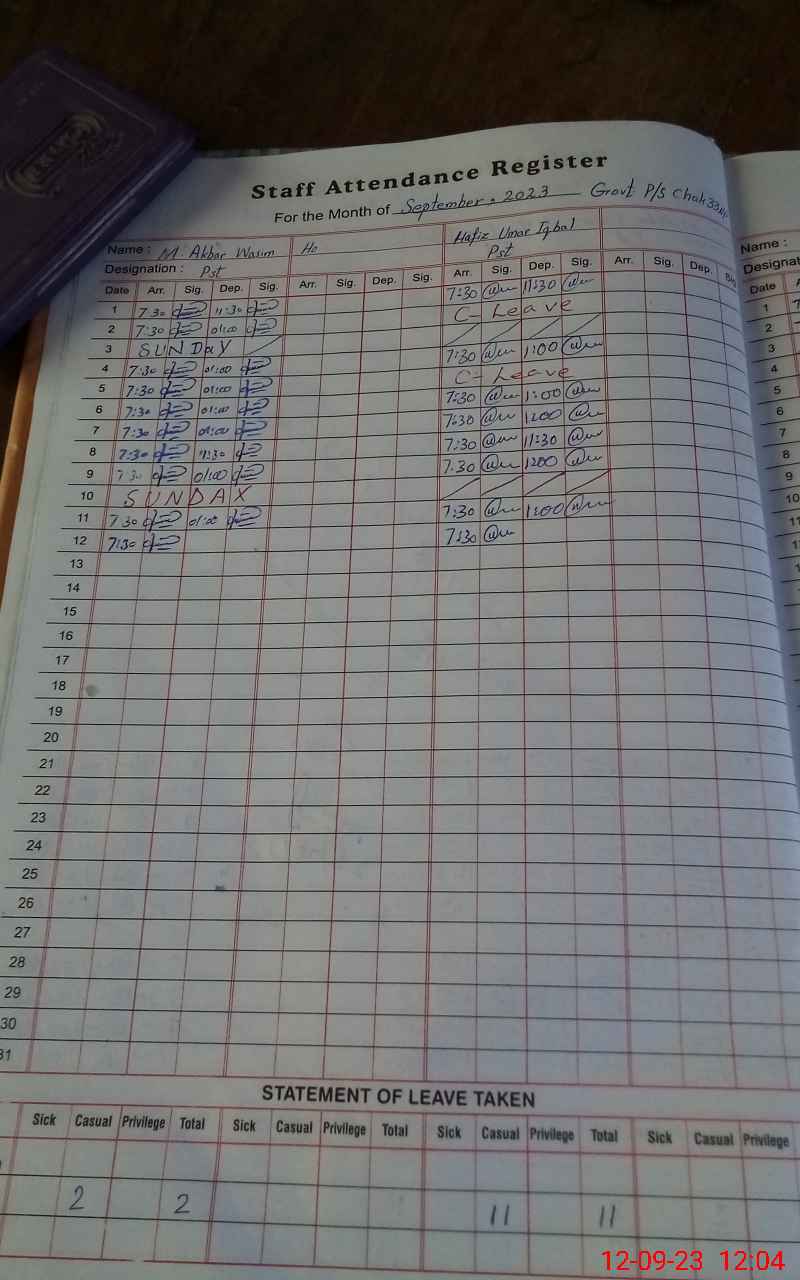 Staff Attendance Register
For the Month of September. 2023 Govt P/S Chak 33
Name : M Akbar Wasim Ho Hafiz Umar Iqbal Name :
Designation : Pst Pst
Date Arr. Sig. Dep. Sig. Arr. Sig. Dep. Sig. Arr. Sig. Dep. Sig. Arr. Sig. Dep. Date
1 7:30 11:30 7:30 11:30 1
2 7:30 01:00 C- Leave 2
3 SUNDAY 3
4 7:30 01:00 7:30 1:00 4
5 7:30 01:00 C- Leave 5
6 7:30 01:00 7:30 1:00 6
7 7:30 01:00 7:30 1:00 7
8 7:30 11:30 7:30 11:30 8
9 7:30 01:00 7:30 1:00 9
10 SUNDAY 10
11 7:30 01:00 7:30 1:00 11
12 7:30 7:30
13
14
15
16
17
18
19
20
21
22
23
24
25
26
27
28
29
30
31
STATEMENT OF LEAVE TAKEN
Sick Casual Privilege Total Sick Casual Privilege Total Sick Casual Privilege Total Sick Casual Privilege
2 2 11 11
12-09-23 12:04